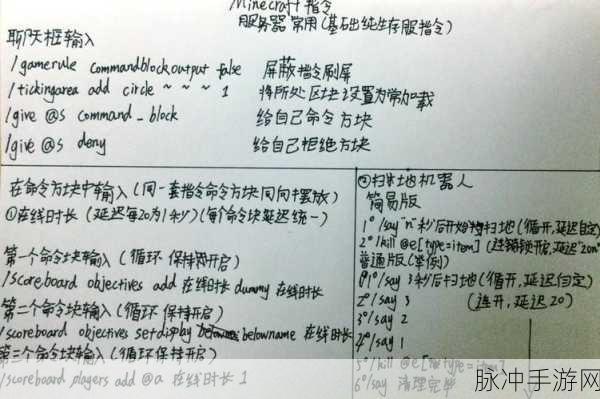 Minecraft 指令
服务器常用(基础纯生存服指令)
聊天框输入
/gamerule commandblockoutput false 屏蔽指令刷屏
/tickingarea add circle ~ ~ ~ 1 将所处区块设置为常加载
/give @s command_block 给自己命令方块
/give @s deny 给自己拒绝方块
在命令方块中输入(同一套指令命令方块同向摆放)
①在线时长(延迟每20为1秒)(每个命令块延迟统一)
第一个命令块输入(循环 保持开启)
/scoreboard objectives add 在线时长 dummy 在线时长
第二个命令块输入(循环 保持开启)
/scoreboard objectives setdisplay belowname 在线时长
第三个命令块输入(循环保持开启)
/scoreboard players add @a 在线时长 1
②扫地机器人
简易版
1°/say "n"秒后开始扫地(循开,延迟自定)
2°/kill @e[type=item] (连锁开启,延迟"20n"
普通版(举例)
1°/say 3秒后扫地(循开,延迟自定)
2°/say 3 (连开,延迟20)
3°/say 2
4°/say 1
5°/kill @e[type=item]
6°/say 清理完毕
脉冲手游网